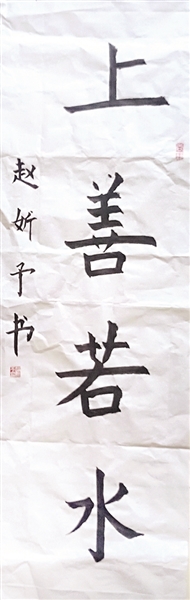 上善若水
赵妡予书